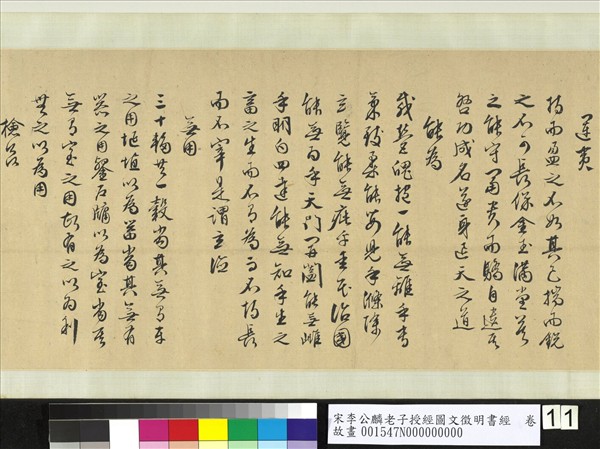 運夷
持而盈之不如其已揣而銳
之不可長保金玉滿堂莫
之能守富貴而驕自遺其
咎功成名遂身退天之道
能為
載營魄抱一能無離乎專
氣致柔能嬰兒乎滌除
玄覽能無疵乎愛民治國
能無為乎天門開闔能無雌
乎明白四達能無知乎生之
畜之生而不有為而不恃長
而不宰是謂玄德
無用
三十輻共一轂當其無有車
之用埏埴以為器當其無有
器之用鑿戶牖以為室當其
無有室之用故有之以為利
無之以為用
檢欲
宋李公麟老子授經圖文徵明書經 卷 11
故畫 001547N000000000